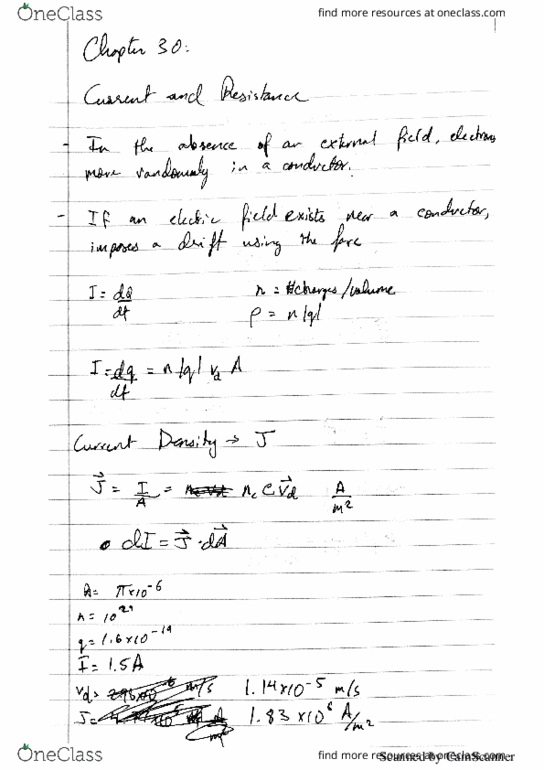 OneClass
find more resources at oneclass.com
Chapter 30:
Current and Resistance
- In the absence of an external field, electrons
move randomly in a conductor.
- If an electric field exists near a conductor,
imposes a drift using the force
I = dQ/dt n = #charges/volume
ρ = n|q|
I = dq/dt = n|q| v_d A
Current Density → J
J⃗ = I/A = n_c e v⃗_d A/m²
• dI = J⃗ · dA⃗
A = π×10⁻⁶
n =
q = 1.6×10⁻¹⁹
I = 1.5A
v_d = m/s 1.14×10⁻⁵ m/s
J = 1.83×10⁶ A/m²
OneClass
find more resources at oneclass.com
Scanned by CamScanner